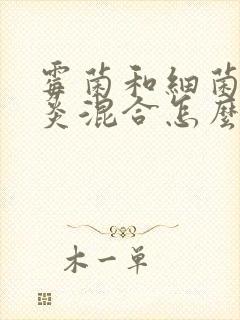 霉菌和细菌
炎混合怎麼
木一单